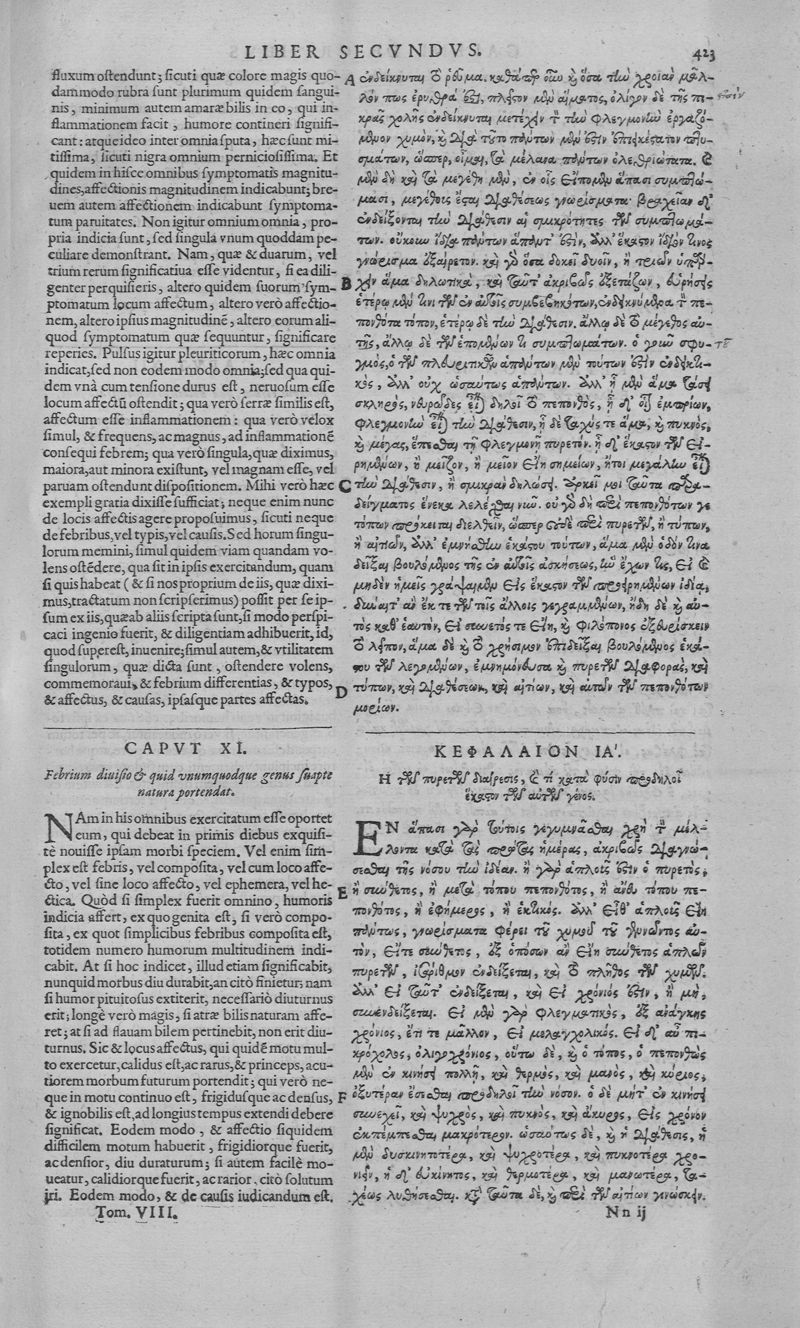 LIBER SECVNDVS. 423
fluxum oſtendunt; ſicuti quæ colore magis quo-
dammodo rubra ſunt plurimum quidem ſangui-
nis, minimum autem amaræ bilis in eo, qui in-
flammationem facit, humore contineri ſignifi-
cant: atque ideo inter omnia ſputa, hæc ſunt mi-
tiſſima, ſicuti nigra omnium pernicioſiſſima. Et
quidem in hiſce omnibus ſymptomatis magnitu-
dines, affectionis magnitudinem indicabunt; bre-
uem autem affectionem indicabunt ſymptoma-
tum paruitates. Non igitur omnium omnia, pro-
pria indicia ſunt, ſed ſingula vnum quoddam pe-
culiare demonſtrant. Nam, quæ & duarum, vel
trium rerum ſignificatiua eſſe videntur, ſi ea dili-
genter perquiſieris, altero quidem ſuorum ſym-
ptomatum locum affectum, altero verò affectio-
nem, altero ipſius magnitudinē, altero eorum ali-
quod ſymptomatum quæ ſequuntur, ſignificare
reperies. Pulſus igitur pleuriticorum, hæc omnia
indicat, ſed non eodem modo omnia; ſed qua qui-
dem vnà cum tenſione durus eſt, neruoſum eſſe
locum affectū oſtendit; qua verò ſerræ ſimilis eſt,
affectum eſſe inflammationem: qua verò velox
ſimul, & frequens, ac magnus, ad inflammationē
conſequi febrem; qua verò ſingula, quæ diximus,
maiora, aut minora exiſtunt, vel magnam eſſe, vel
paruam oſtendunt diſpoſitionem. Mihi verò hæc
exempli gratia dixiſſe ſufficiat; neque enim nunc
de locis affectis agere propoſuimus, ſicuti neque
de febribus, vel typis, vel cauſis. Sed horum ſingu-
lorum memini, ſimul quidem viam quandam vo-
lens oſtēdere, qua ſit in ipſis exercitandum, quam
ſi quis habeat (& ſi nos proprium de iis, quæ dixi-
mus, tractatum non ſcripſerimus) poſſit per ſe ip-
ſum ex iis, quæ ab aliis ſcripta ſunt, ſi modo perſpi-
caci ingenio fuerit, & diligentiam adhibuerit, id,
quod ſupereſt, inuenire; ſimul autem, & vtilitatem
ſingulorum, quæ dicta ſunt, oſtendere volens,
commemoraui, & febrium differentias, & typos,
& affectus, & cauſas, ipſaſque partes affectas.
CAPVT XI.
Febrium diuiſio & quid vnumquodque genus ſuapte
natura portendat.
NAm in his omnibus exercitatum eſſe oportet
eum, qui debeat in primis diebus exquiſi-
tè nouiſſe ipſam morbi ſpeciem. Vel enim ſim-
plex eſt febris, vel compoſita, vel cum loco affe-
cto, vel ſine loco affecto, vel ephemera, vel he-
ctica. Quòd ſi ſimplex fuerit omnino, humoris
indicia affert, ex quo genita eſt, ſi verò compo-
ſita, ex quot ſimplicibus febribus compoſita eſt,
totidem numero humorum multitudinem indi-
cabit. At ſi hoc indicet, illud etiam ſignificabit,
nunquid morbus diu durabit, an citò finietur; nam
ſi humor pituitoſus extiterit, neceſſariò diuturnus
erit; longè verò magis, ſi atræ bilis naturam affe-
ret; at ſi ad flauam bilem pertinebit, non erit diu-
turnus. Sic & locus affectus, qui quidē motu mul-
to exercetur, calidus eſt, ac rarus, & princeps, acu-
tiorem morbum futurum portendit; qui verò ne-
que in motu continuo eſt, frigiduſque ac denſus,
& ignobilis eſt, ad longius tempus extendi debere
ſignificat. Eodem modo, & affectio ſiquidem
difficilem motum habuerit, frigidiorque fuerit,
ac denſior, diu duraturum; ſi autem facilè mo-
ueatur, calidiorque fuerit, ac rarior, citò ſolutum
iri. Eodem modo, & de cauſis iudicandum eſt.
A ἐνδείκνυται τὸ ῥεῦμα. καθάπερ οὖν καὶ ὅσα τὴν χροιὰν μᾶλ-
λόν πως ἐρυθρά ἐστι, πλεῖστον μὲν αἵματος, ὀλίγον δὲ τῆς πι-
κρᾶς χολῆς ἐνδείκνυται μετέχειν τὸν τὴν φλεγμονὴν ἐργαζό-
μενον χυμὸν, καὶ διὰ τοῦτο πάντων μέν ἐστιν ἐπιεικέστατον πτυ-
σμάτων, ὥσπερ, οἶμαι, τὰ μέλανα πάντων ὀλεθριώτατα. καὶ
μὲν δὴ καὶ τὰ μεγέθη μὲν, ἐν οἷς εἴπομεν ἅπασι συμπτώ-
μασι, μεγέθους ἔσται διαθέσεως γνωρίσματα· βραχεῖαν δ'
ἐνδείξονται τὴν διάθεσιν αἱ σμικρότητες τῶν συμπτωμά-
των. οὔκουν ἴδια πάντων ἅπαντ' ἐστὶν, ἀλλ' ἕκαστον ἴδιόν τινος
γνώρισμα ἐξαίρετον. καὶ γὰρ ὅσα δοκεῖ δυοῖν, ἢ τριῶν ὑπάρ-
B χειν ἅμα δηλωτικὰ, καὶ ταῦτ' ἀκριβῶς ἐξετάζων, εὑρήσεις
ἑτέρῳ μέν τινι τῶν ἐν αὐτοῖς συμβεβηκότων, ἐνδεικνύμενα τὸν πε-
πονθότα τόπον, ἑτέρῳ δὲ τὴν διάθεσιν, ἄλλῳ δὲ τὸ μέγεθος αὐ-
τῆς, ἄλλῳ δὲ τῶν ἑπομένων τι συμπτωμάτων. ὁ γοῦν σφυ-
γμὸς, ὁ τῶν πλευριτικῶν ἁπάντων μὲν τούτων ἐστὶν ἐνδεικτι-
κὸς, ἀλλ' οὐχ ὡσαύτως ἁπάντων. ἀλλ' ᾗ μὲν ἅμα τάσει
σκληρὸς, νευρῶδες εἶναι δηλοῖ τὸ πεπονθὸς, ᾗ δ' οἷον ἐμπρίων,
φλεγμονὴν εἶναι τὴν διάθεσιν, ᾗ δὲ ταχύς τε ἅμα, καὶ πυκνὸς,
καὶ μέγας, ἕπεσθαι τῇ φλεγμονῇ πυρετόν. ᾗ δ' ἕκαστον τῶν εἰ-
ρημένων, ἢ μεῖζον, ἢ μεῖον εἴη σημεῖων, ἤτοι μεγάλην εἶναι
C τὴν διάθεσιν, ἢ σμικρὰν δηλώσει. ἀρκεῖ μοι ταῦτα παρα-
δείγματος ἕνεκα λελέχθαι νῦν. οὐ γὰρ δὴ περὶ πεπονθότων γε
τόπων πρόκειται διελθεῖν, ὥσπερ οὐδὲ περὶ πυρετῶν, ἢ τύπων,
ἢ αἰτιῶν, ἀλλ' ἐμνήσθην ἑκάστου τούτων, ἅμα μὲν ὁδόν τινα
δεῖξαι βουλόμενος τῆς ἐν αὐτοῖς ἀσκήσεως, ἣν ἔχων τις, εἰ καὶ
μηδὲν ἡμεῖς γράψαιμεν εἰς ἕκαστον τῶν προειρημένων ἰδίᾳ,
δύναιτ' ἂν ἔκ τε τῶν τοῖς ἄλλοις γεγραμμένων, ἤδη δὲ καὶ αὐ-
τὸς καθ' ἑαυτὸν, εἰ συνετός τε εἴη, καὶ φιλόπονος ἐξευρίσκειν
τὸ λεῖπον, ἅμα δὲ καὶ τὸ χρήσιμον ἐπιδεῖξαι βουλόμενος ἑκά-
στου τῶν λεγομένων, ἐμνημόνευσα καὶ πυρετῶν διαφορᾶς, καὶ
D τύπων, καὶ διαθέσεων, καὶ αἰτίων, καὶ αὐτῶν τῶν πεπονθότων
μορίων.
ΚΕΦΑΛΑΙΟΝ ΙΑ'.
Η τῶν πυρετῶν διαίρεσις, καὶ τί κατὰ φύσιν προδηλοῖ
ἕκαστον τῶν αὐτῶν γένος.
ΕΝ ἅπασι γὰρ τούτοις γεγυμνάσθαι χρὴ τὸν μέλ-
λοντα κατὰ τὰς πρώτας ἡμέρας, ἀκριβῶς διαγνώ-
σεσθαι τῆς νόσου τὴν ἰδέαν. ἢ γὰρ ἁπλοῦς ἐστιν ὁ πυρετὸς,
E ἢ σύνθετος, ἢ μετὰ τόπου πεπονθότος, ἢ ἄνευ τόπου πε-
πονθότος, ἢ ἐφήμερος, ἢ ἑκτικός. ἀλλ' εἴθ' ἁπλοῦς εἴη
πάντως, γνωρίσματα φέρει τοῦ χυμοῦ τοῦ γεννῶντος αὐ-
τὸν, εἴτε σύνθετος, ἐξ ὁπόσων ἂν εἴη σύνθετος ἁπλῶν
πυρετῶν, ἰσάριθμον ἐνδείξεται, καὶ τὸ πλῆθος τῶν χυμῶν.
ἀλλ' εἰ τοῦτ' ἐνδείξεται, καὶ εἰ χρόνιός ἐστιν, ἢ μὴ,
συνενδείξεται. εἰ μὲν γὰρ φλεγματικὸς, ἐξ ἀνάγκης
χρόνιος, ἔτι τε μᾶλλον, εἰ μελαγχολικός. εἰ δ' αὖ πι-
κρόχολος, ὀλιγοχρόνιος, οὕτω δὲ, καὶ ὁ τόπος, ὁ πεπονθὼς
μὲν ἐν κινήσει πολλῇ, καὶ θερμὸς, καὶ μανὸς, καὶ κύριος,
F ὀξυτέραν ἔσεσθαι προδηλοῖ τὴν νόσον. ὁ δὲ μήτ' ἐν κινήσει
συνεχεῖ, καὶ ψυχρὸς, καὶ πυκνὸς, καὶ ἄκυρος, εἰς χρόνον
ἐκπέμπεσθαι μακρότερον. ὡσαύτως δὲ, καὶ ἡ διάθεσις, ἡ
μὲν δυσκινητοτέρα, καὶ ψυχροτέρα, καὶ πυκνοτέρα χρο-
νιεῖν, ἡ δ' εὐκίνητος, καὶ θερμοτέρα, καὶ μανωτέρα, τα-
χέως λυθήσεσθαι. κατὰ ταῦτα δὲ, καὶ περὶ τῶν αἰτίων γινώσκειν.
Tom. VIII. Nn ij